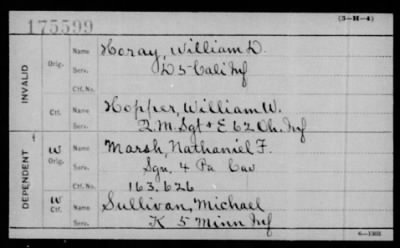 175599
(3-H-4)
INVALID
Orig.
Name Horay, William D.
Serv. D 5 Cali Inf
Ctf. No.
Ctf.
Name Hopper, William W.
Serv. Q.M. Sgt + E 62 Oh. Inf
DEPENDENT
W
Orig.
Name Marsh, Nathaniel F.
Serv. Sgn. 4 Pa Cav
Ctf. No. 163.626
W
Ctf.
Name Sullivan, Michael
Serv. K 5 Minn Inf